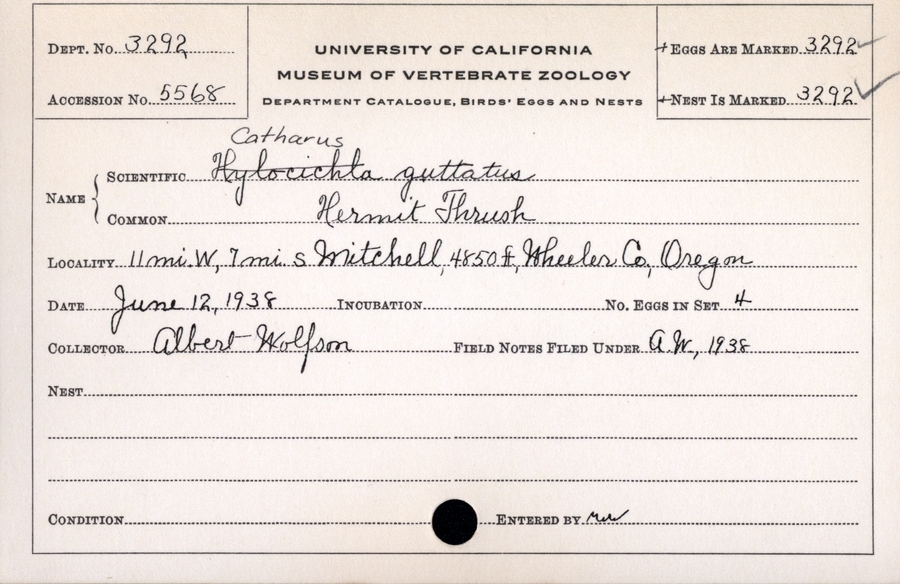 Dept. No. 3292
Accession No. 5568
UNIVERSITY OF CALIFORNIA
MUSEUM OF VERTEBRATE ZOOLOGY
Department Catalogue, Birds' Eggs and Nests
+Eggs Are Marked 3292 ✓
+Nest Is Marked 3292 ✓
Catharus
Name { Scientific Hylocichla guttatus
Common Hermit Thrush
Locality 11 mi. W, 7 mi. S Mitchell, 4850 ft, Wheeler Co, Oregon
Date June 12, 1938 Incubation No. Eggs in Set 4
Collector Albert Wolfson Field Notes Filed Under A.W., 1938
Nest
Condition Entered by